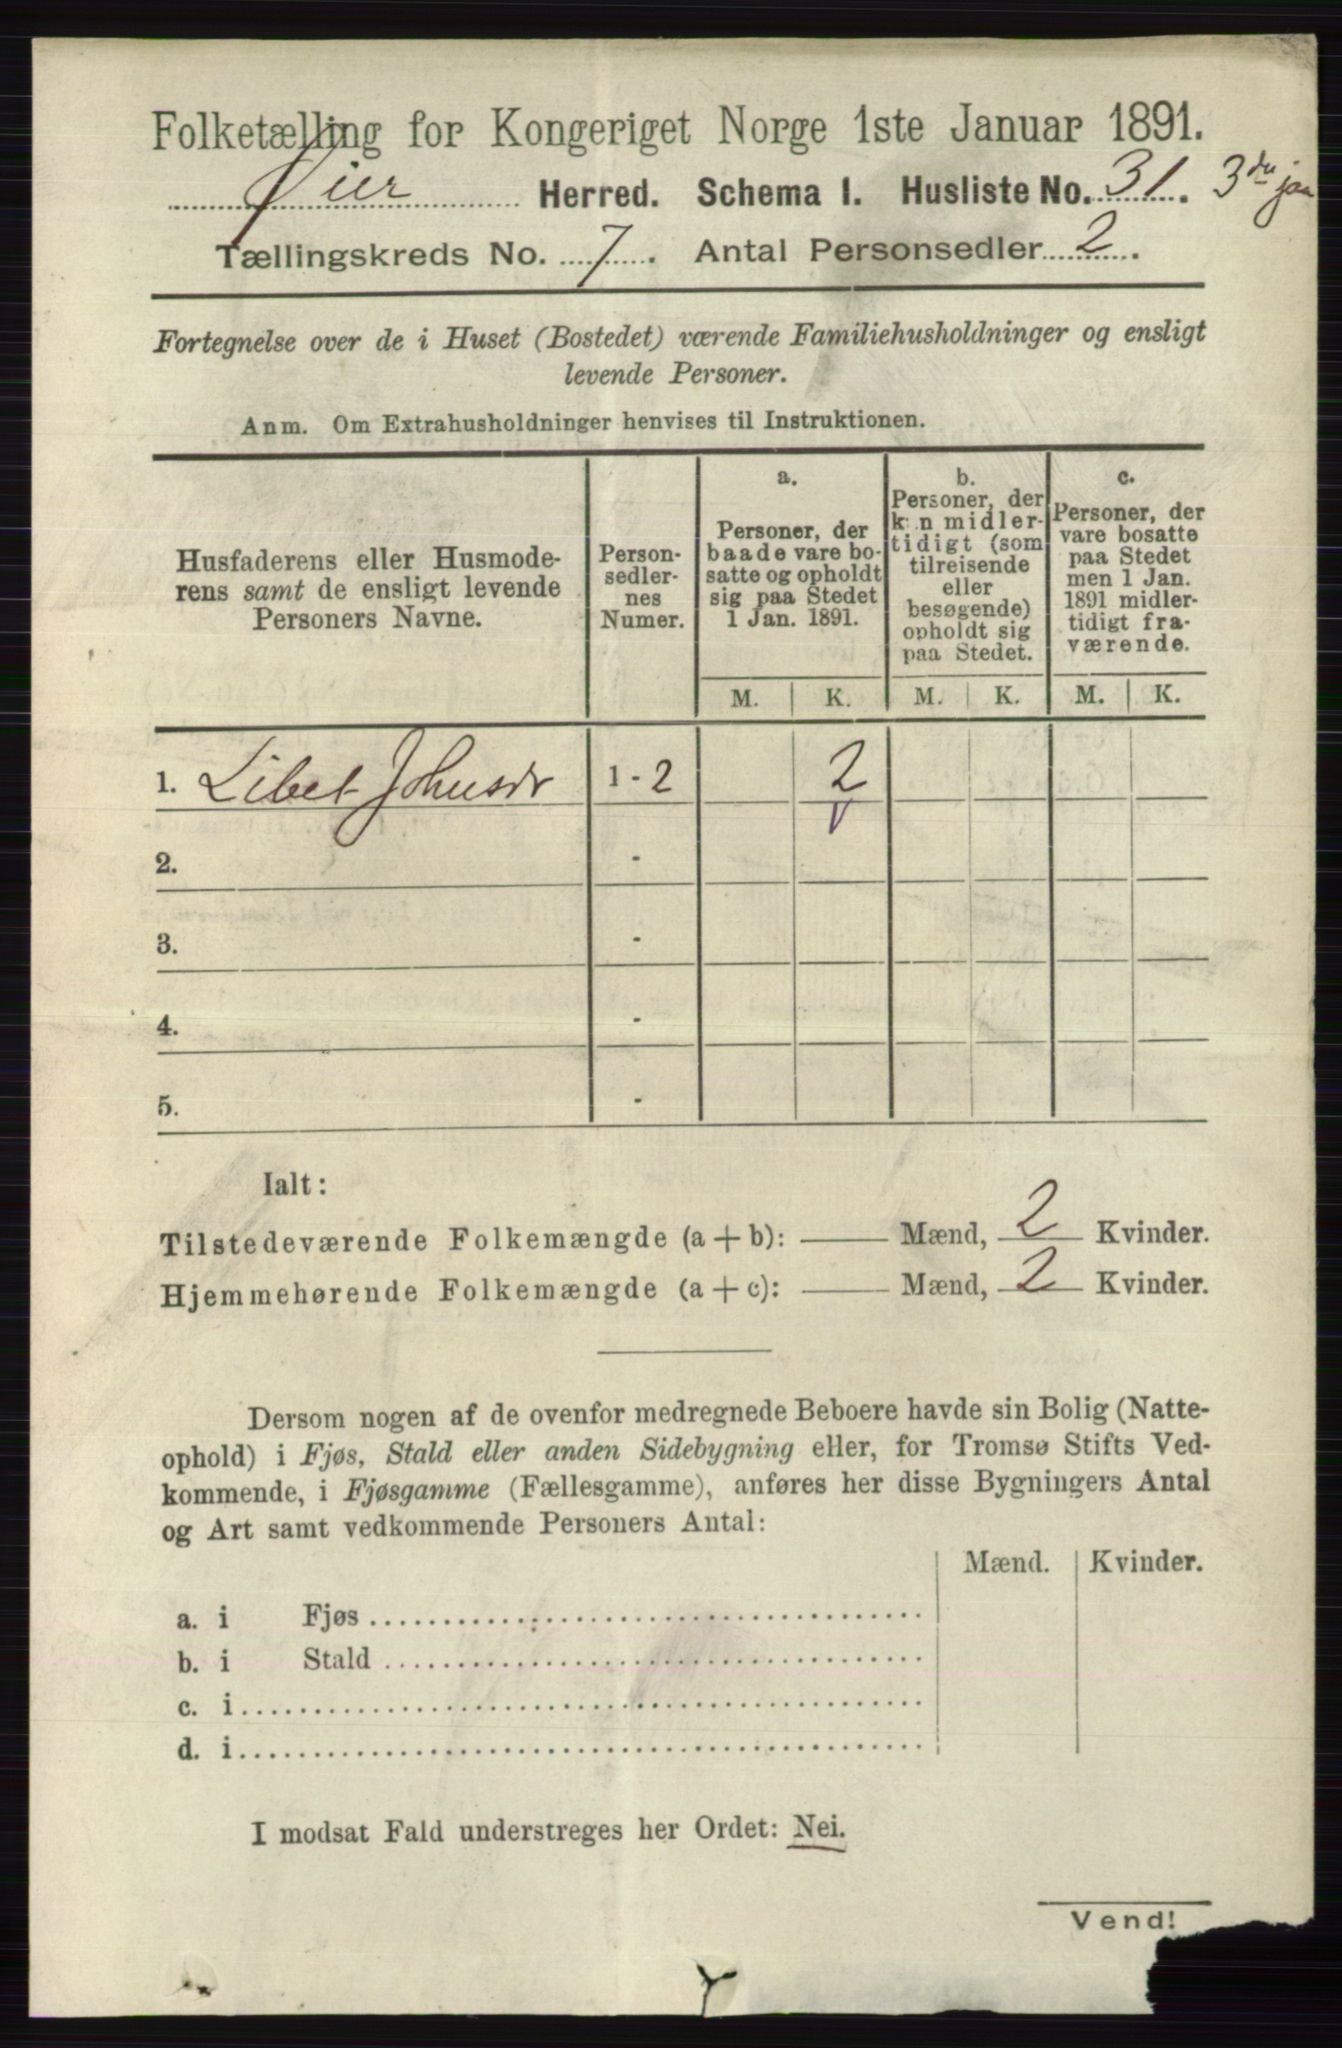 Folketælling for Kongeriget Norge 1ste Januar 1891.
Øier Herred. Schema I. Husliste No. 31. 3die jan
Tællingskreds No. 7. Antal Personsedler 2.
Fortegnelse over de i Huset (Bostedet) værende Familiehusholdninger og ensligt
levende Personer.
Anm. Om Extrahusholdninger henvises til Instruktionen.
Husfaderens eller Husmode-
rens samt de ensligt levende
Personers Navne.
Person-
sedler-
nes
Numer.
a.
Personer, der
baade vare bo-
satte og opholdt
sig paa Stedet
1 Jan. 1891.
b.
Personer, der
kun midler-
tidigt (som
tilreisende
eller
besøgende)
opholdt sig
paa Stedet.
c.
Personer, der
vare bosatte
paa Stedet
men 1 Jan.
1891 midler-
tidigt fra-
værende.
M. K. M. K. M. K.
1. Libet Johnsdr 1 - 2 2
2. -
3. -
4. -
5. -
Ialt:
Tilstedeværende Folkemængde (a + b): Mænd, 2 Kvinder.
Hjemmehørende Folkemængde (a + c): Mænd, 2 Kvinder.
Dersom nogen af de ovenfor medregnede Beboere havde sin Bolig (Natte-
ophold) i Fjøs, Stald eller anden Sidebygning eller, for Tromsø Stifts Ved-
kommende, i Fjøsgamme (Fællesgamme), anføres her disse Bygningers Antal
og Art samt vedkommende Personers Antal:
Mænd. Kvinder.
a. i Fjøs
b. i Stald
c. i
d. i
I modsat Fald understreges her Ordet: Nei.
Vend!